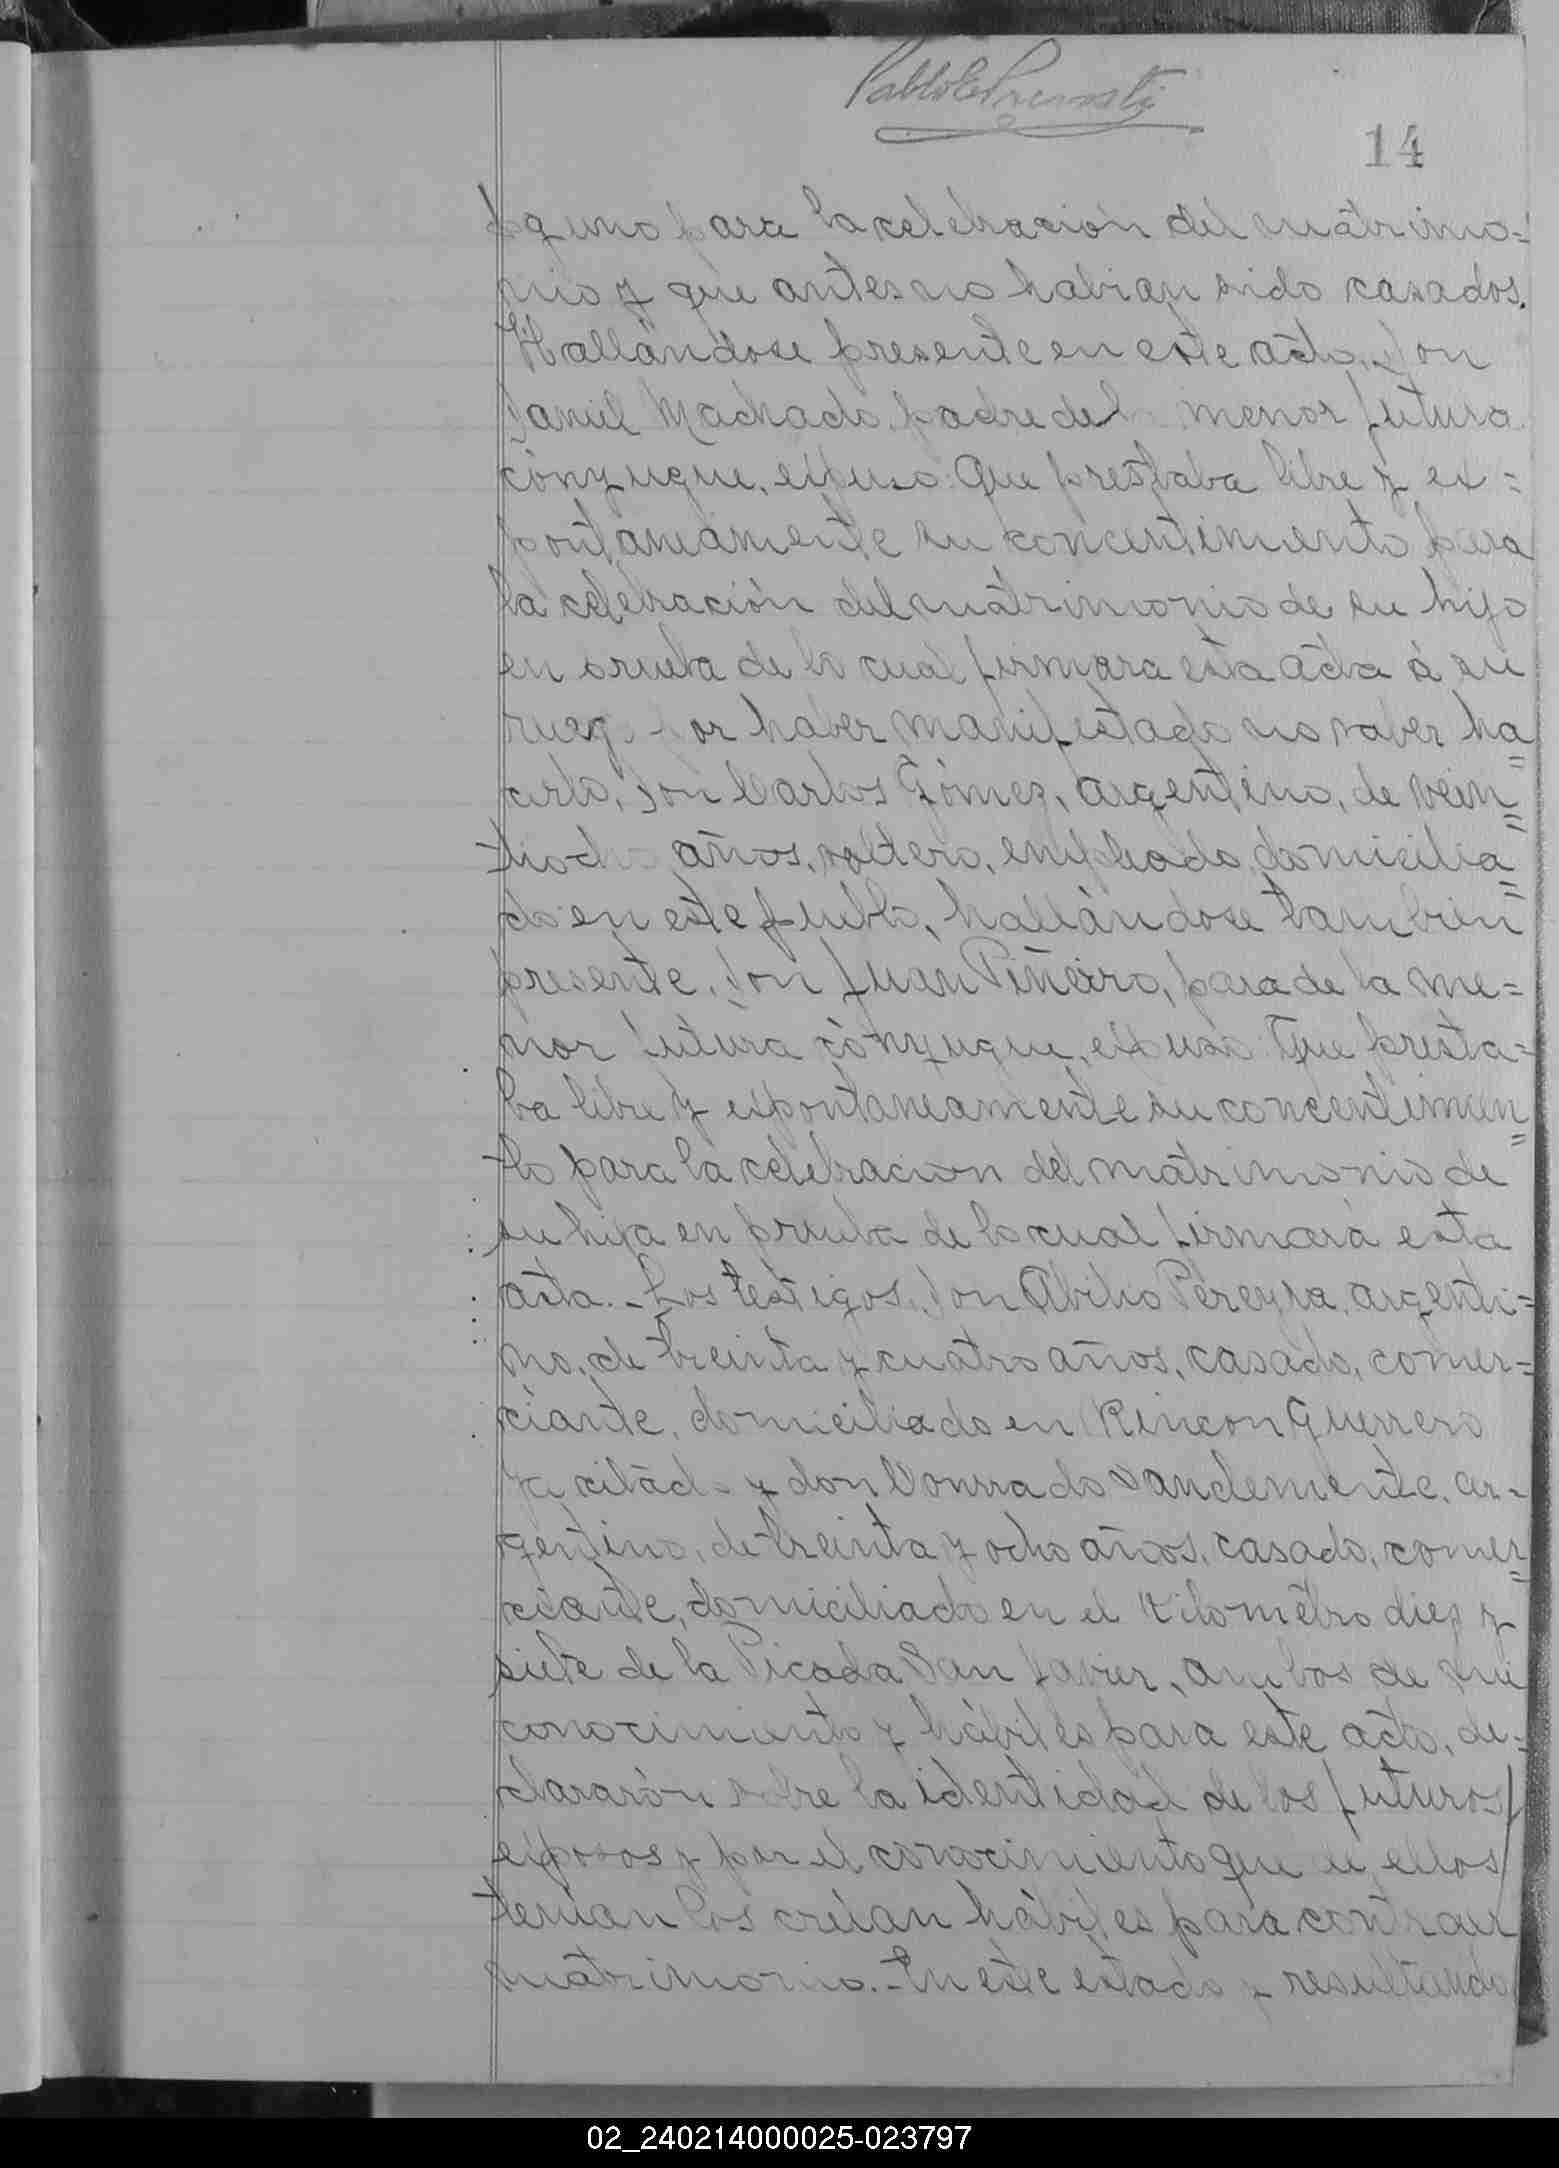 Pablo C Prevosti
14
guno para la celebración del mátrimo=
nio y que antes no habian sido casados.
Hallándose presente en este acto, don
Daniel Machado, padre del menor futuro
cónyugue, expuso: Que prestaba libre y es=
pontáneámente su concentimiento para
la celebración del mátrimonio de su hijo
en prueba de lo cual firmara esta acta á su
ruego por haber manifestado no saber ha=
cerlo, don Carlos Gómez, argentino, de vein=
tiocho años, soltero, empleado, domicilia=
do en este pueblo, hallándose tambien
presente, don Juan Piñeiro, para de la me=
nor futura cónyugue, expuso: Que presta=
ba libre y espontaneamente su concentimien=
to para la celebracion del mátrimonio de
su hija en prueba de lo cual firmará esta
acta.- Los testigos, don Abilio Pereyra, argenti=
no, de treinta y cuatro años, casado, comer=
ciante, domiciliado en Rincon Guerrero
ya citado y don Conrado Vandemente, ar=
gentino, de treinta y ocho años, casado, comer=
ciante, domiciliado en el Kilometro diez y
siete de la Picada San Javier, ambos de mi
conocimiento y hábiles para este acto, de=
clararón sobre la identidad de los futuros
esposos y por el conocimiento que de ellos
tenian los creían hábiles para contraer
mátrimonio.- En este estado y resultando
02_240214000025-023797